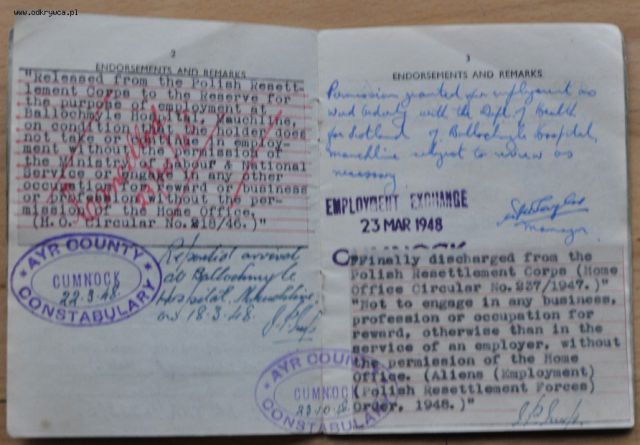 www.odkrywca.pl
2
ENDORSEMENTS AND REMARKS
"Released from the Polish Resett-
lement Corps to the Reserve for
the purpose of employment at
Ballochmyle Hospital, Mauchline,
on condition that the holder does
not take or change in employ-
ment without the permission of
the Ministry of Labour & National
Service or engage in any other
occupation for reward or business
or profession without the per-
mission of the Home Office.
(H.O. Circular No.218/46.)"
Cancelled
AYR COUNTY
CUMNOCK
22.3.48.
CONSTABULARY
Reported arrival
at Ballochmyle
Hospital, Mauchline,
on 18.3.48.
3
ENDORSEMENTS AND REMARKS
Permission granted for employment as
ward orderly with the Dept. of Health
for Scotland at Ballochmyle Hospital,
Mauchline subject to review as
necessary
EMPLOYMENT EXCHANGE
23 MAR 1948
CUMNOCK
Manager
"Finally discharged from the
Polish Resettlement Corps (Home
Office Circular No.237/1947.)"
"Not to engage in any business,
profession or occupation for
reward, otherwise than in the
service of an employer, without
the permission of the Home
Office. (Aliens (Employment)
(Polish Resettlement Forces)
Order, 1948.)"
AYR COUNTY
CUMNOCK
CONSTABULARY